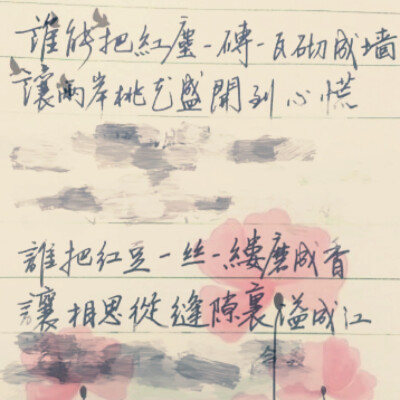 誰能把紅塵一磚一瓦砌成墙
讓兩岸桃花盛開到心慌
誰把红豆一丝一縷磨成香
讓相思從縫隙裏溢成江